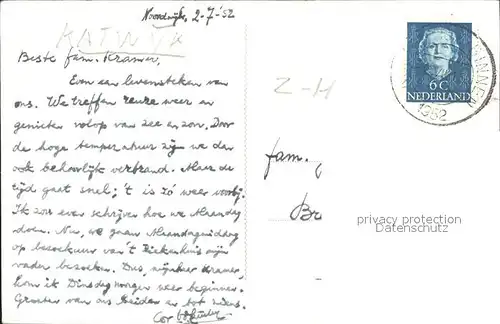 Noordwijk, 2-7-'52
KATWYK
Beste fam. Kramer,
Even een levensteken van
ons. We treffen reuze weer en
genieten volop van zee en zon. Door
de hoge temperatuur zijn we dan
ook behoorlijk verbrand. Maar de
tijd gaat snel; 't is zó weer voorbij.
Ik zou even schrijven hoe we Maandag
doen. Nu, we gaan Maandagmiddag
op bezoekuur van 't Ziekenhuis mijn
vader bezoeken. Dus, mijnheer Kramer,
kom ik Dinsdagmorgen weer beginnen.
Groeten van ons beiden en tot ziens.
Cor
Z-H
6C
NEDERLAND
1952
fam.
Br
privacy protection
Datenschutz